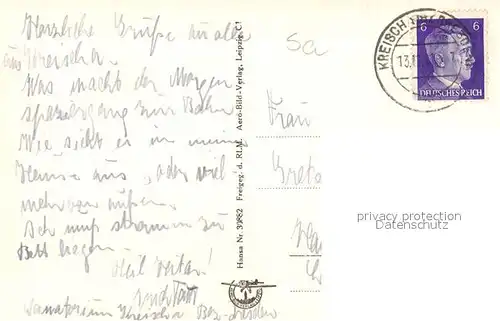 Herzliche Grüße an alle
aus Kreischa.
Was macht der Morgen
spaziergang zur Bahn
Wie sieht es in meinem
Hause aus, oder viel
mehr von außen.
Ich muß stramm zu
Bett liegen.
Heil Weiter!
Sanatorium Kreischa Bez. Dresden
5a
Frau
Grete
Hansa Nr. 39882 Freigeg. d. RLM. Aero-Bild-Verlag, Leipzig C1
KREISCHA
13.
6 6
DEUTSCHES REICH
privacy protection
Datenschutz